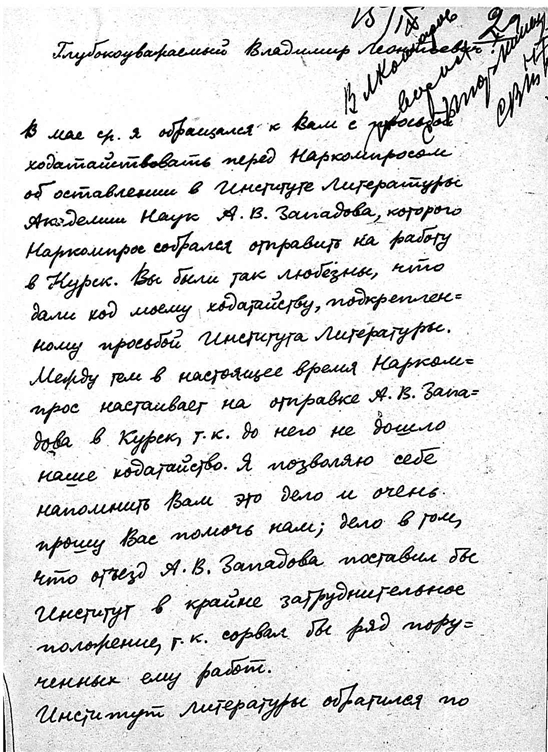 15/IX
29
Глубокоуважаемый Владимир Леонтьевич
В мае ср. я обращался к Вам с просьбой
ходатайствовать перед Наркомпросом
об оставлении в Институте Литературы
Академии Наук А. В. Западова, которого
Наркомпрос собрался отправить на работу
в Курск. Вы были так любезны, что
дали ход моему ходатайству, подкреплен=
ному просьбой Института Литературы.
Между тем в настоящее время Нарком=
прос настаивает на отправке А. В. Запа=
дова в Курск, т.к. до него не дошло
наше ходатайство. Я позволяю себе
напомнить Вам это дело и очень
прошу Вас помочь нам; дело в том,
что отъезд А. В. Западова поставил бы
Институт в крайне затруднительное
положение, т.к. сорвал бы ряд пору=
ченных ему работ.
Институт Литературы обратился по